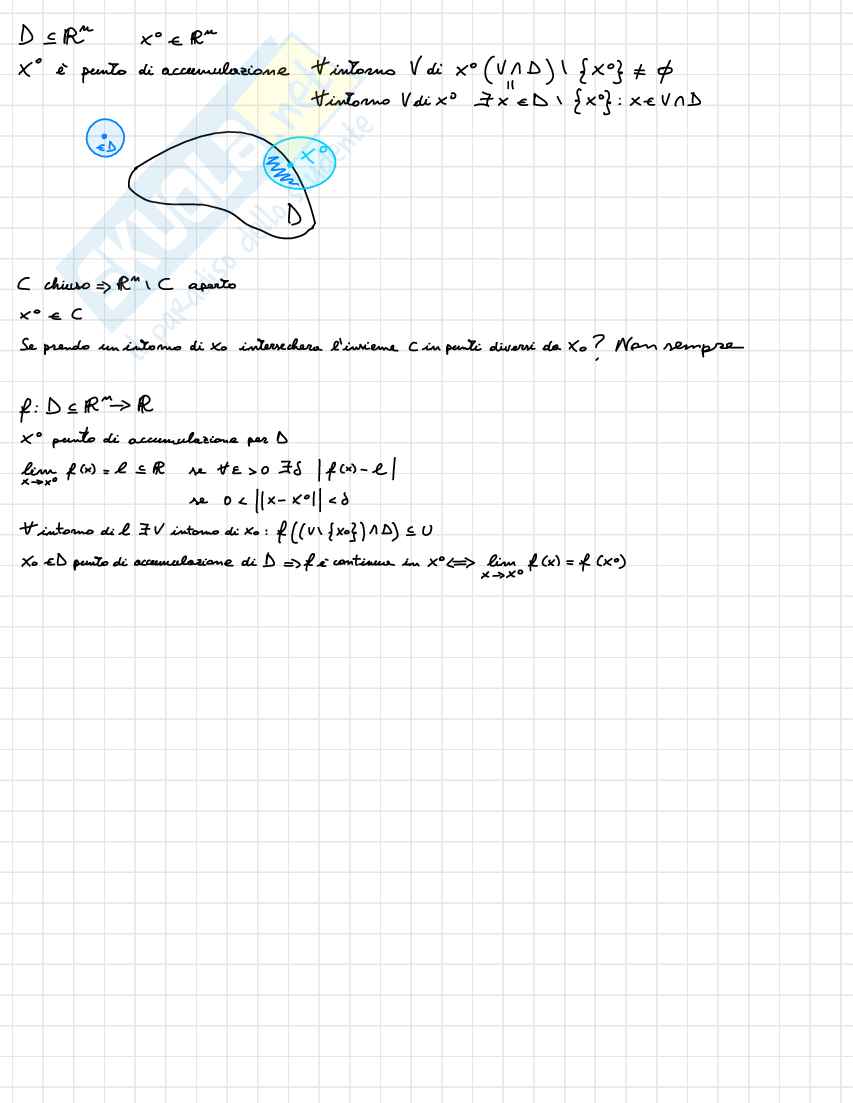 D ⊆ ℝⁿ x° ∈ ℝⁿ
x° è punto di accumulazione ∀ intorno V di x° (V ∩ D) \ {x°} ≠ ∅
=
∀ intorno V di x° ∃ x ∈ D \ {x°} : x ∈ V ∩ D
∈D
x°
D
SKUOLA.net
il paradiso dello studente
C chiuso ⇒ ℝⁿ \ C aperto
x° ∈ C
Se prendo un intorno di x₀ intersecherà l'insieme C in punti diversi da x₀? Non sempre
f: D ⊆ ℝⁿ → ℝ
x° punto di accumulazione per D
lim x→x° f(x) = l ⊆ ℝ se ∀ε > 0 ∃δ |f(x) - l|
se 0 < ||x - x°|| < δ
∀ intorno di l ∃ V intorno di x₀ : f((V \ {x₀}) ∩ D) ⊆ U
x₀ ∈ D punto di accumulazione di D ⇒ f è continua in x° ⇔ lim x→x° f(x) = f(x°)